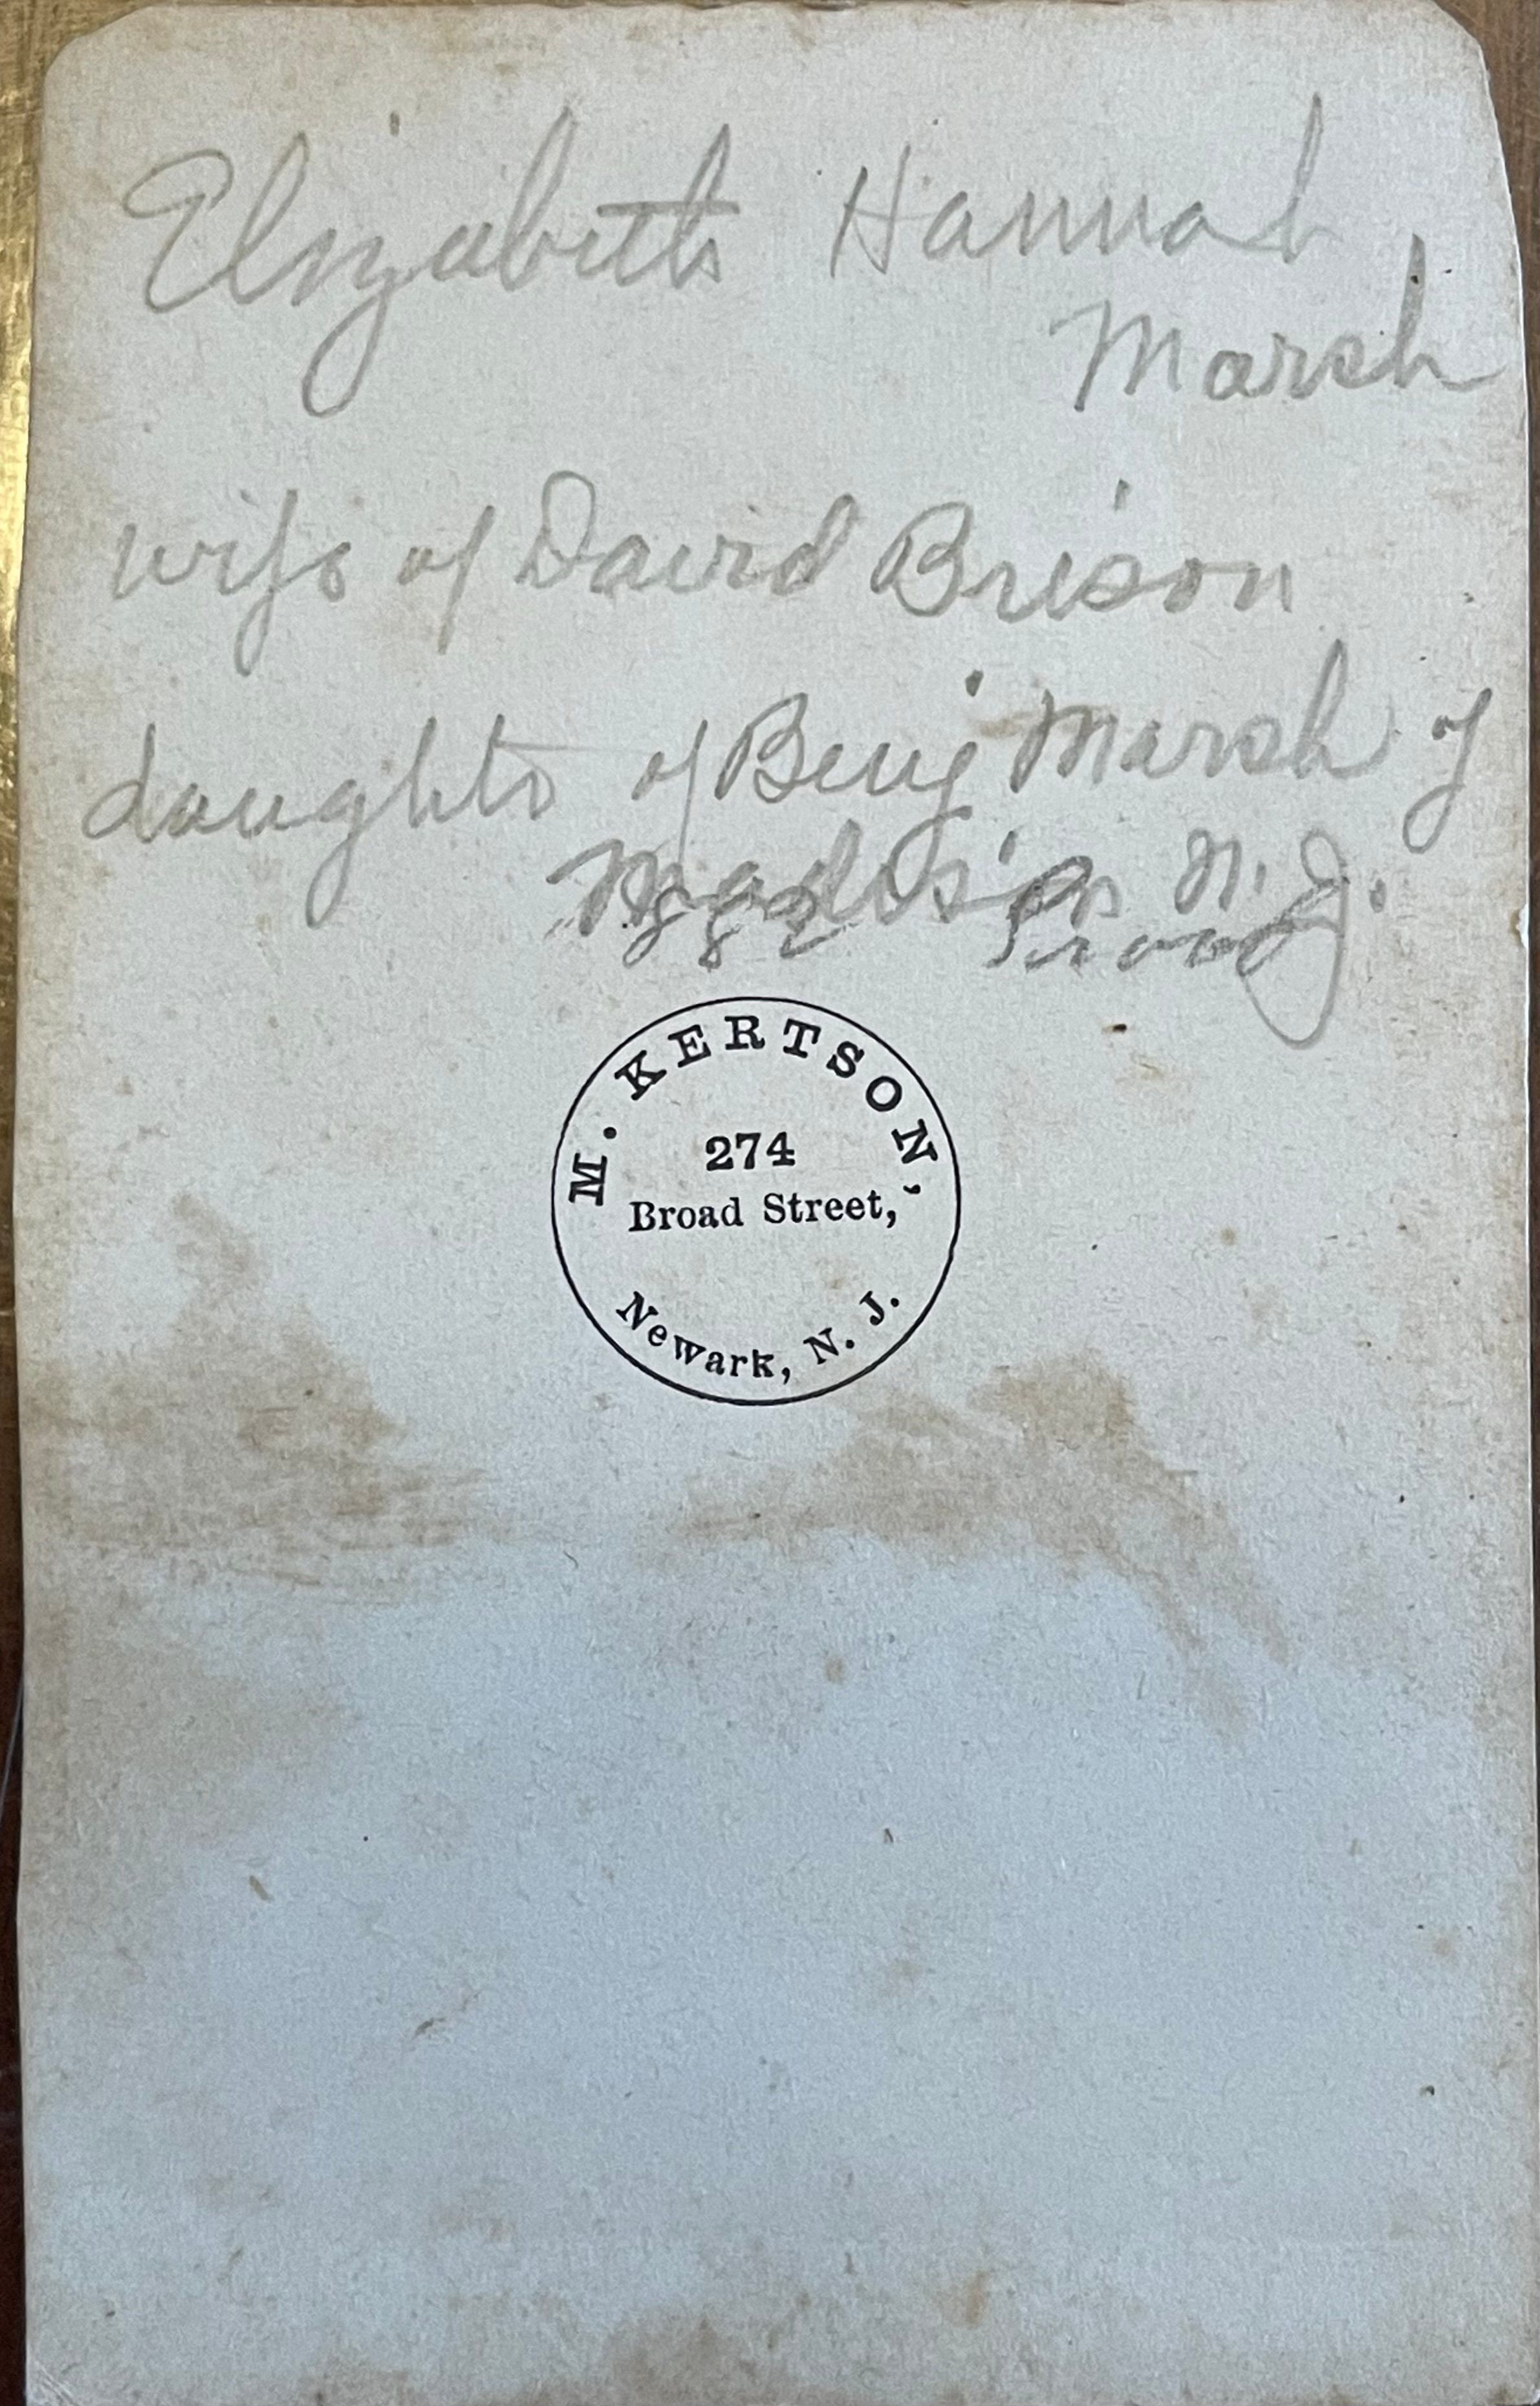 Elizabeth Hannah
Marsh
wife of David Brison
daughter of Benj Marsh of
Madison N.J.
882 Proof
M. KERTSON,
274
Broad Street,
Newark, N. J.